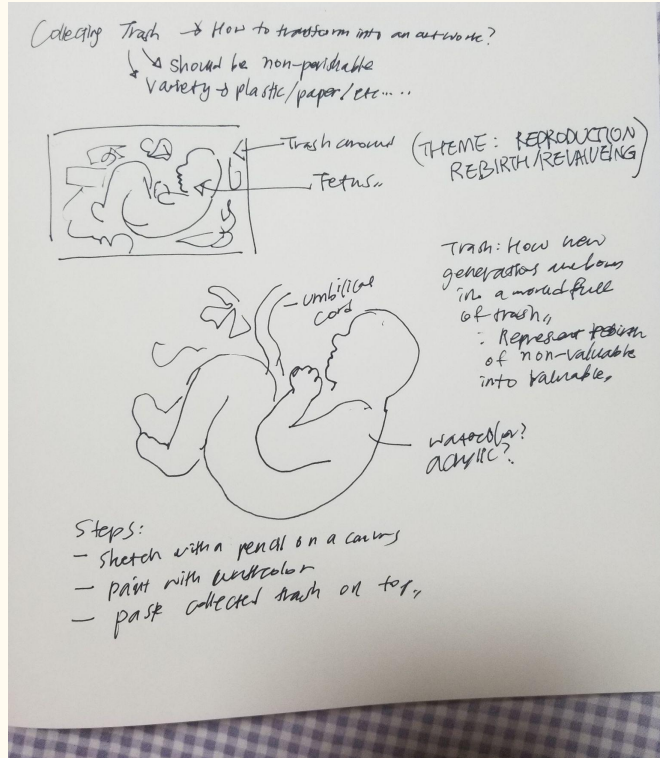 Collecting Trash → How to transform into an artwork?
↘ should be non-perishable
↘ variety → plastic/paper/etc.....
Trash around
Fetus,,
(THEME: REPRODUCTION
REBIRTH/REVALUEING)
umbilical
cord
Trash: How new
generations are born
in a world full
of trash,,
: Represent rebirth
of non-valuable
into valuable,
watercolor?
acrylic?
Steps:
- Sketch with a pencil on a canvas
- paint with watercolor
- paste collected trash on top,,